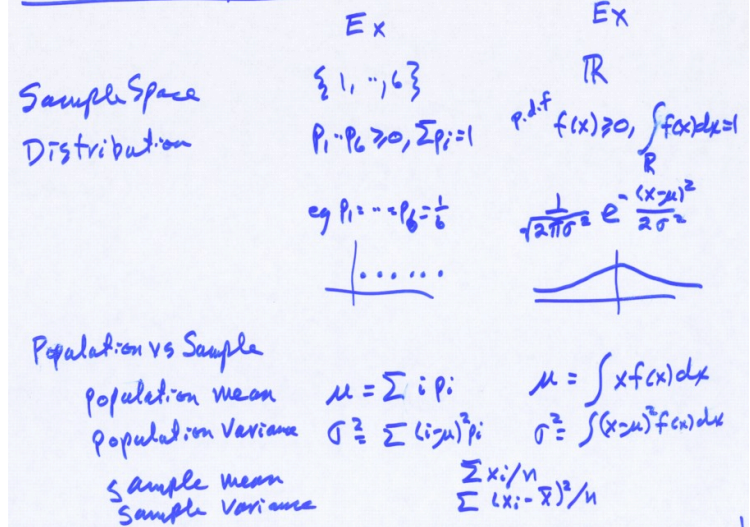 Ex Ex
Sample Space {1, ··, 6} ℝ
Distribution p₁··p₆ ≥0, Σpᵢ=1 p.d.f f(x)≥0, ∫_ℝ f(x)dx=1
eg p₁= ··· =p₆=1/6 1/√(2πσ²) e^-(x-μ)²/2σ²
Population vs Sample
population mean μ = Σ i pᵢ μ = ∫ x f(x) dx
population variance σ² = Σ (i-μ)² pᵢ σ² = ∫(x-μ)² f(x) dx
sample mean Σ xᵢ/n
sample variance Σ (xᵢ - x̄)²/n